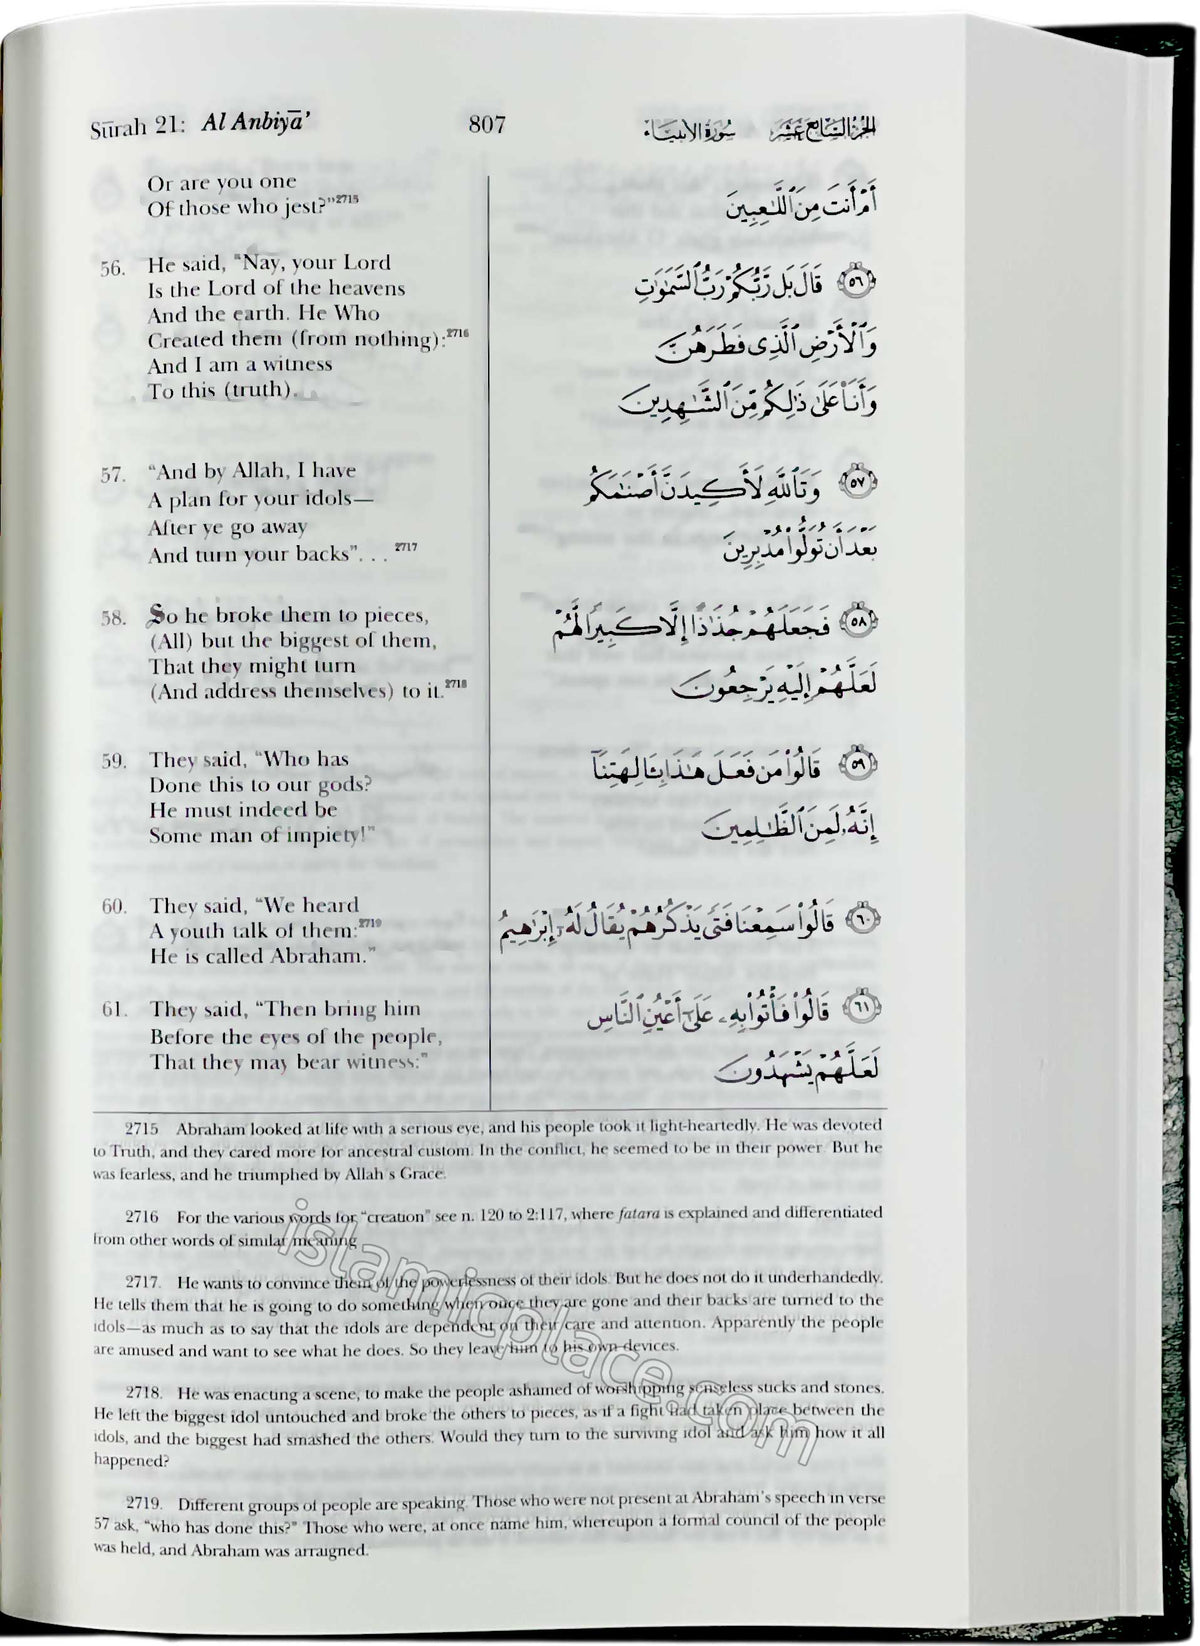 Sūrah 21: Al Anbiyā’ 807 سُورَةُ الأَنبِيَاء الجُزْءُ السَّابِعَ عَشَرَ
Or are you one
Of those who jest?”2715
أَمْ أَنتَ مِنَ ٱللَّـٰعِبِينَ
56. He said, “Nay, your Lord
Is the Lord of the heavens
And the earth. He Who
Created them (from nothing):2716
And I am a witness
To this (truth).
٥٦ قَالَ بَل رَّبُّكُمْ رَبُّ ٱلسَّمَـٰوَٰتِ
وَٱلْأَرْضِ ٱلَّذِى فَطَرَهُنَّ
وَأَنَا۠ عَلَىٰ ذَٰلِكُم مِّنَ ٱلشَّـٰهِدِينَ
57. “And by Allah, I have
A plan for your idols—
After ye go away
And turn your backs”. . . 2717
٥٧ وَتَٱللَّهِ لَأَكِيدَنَّ أَصْنَـٰمَكُم
بَعْدَ أَن تُوَلُّوا۟ مُدْبِرِينَ
58. So he broke them to pieces,
(All) but the biggest of them,
That they might turn
(And address themselves) to it.2718
٥٨ فَجَعَلَهُمْ جُذَٰذًا إِلَّا كَبِيرًا لَّهُمْ
لَعَلَّهُمْ إِلَيْهِ يَرْجِعُونَ
59. They said, “Who has
Done this to our gods?
He must indeed be
Some man of impiety!”
٥٩ قَالُوا۟ مَن فَعَلَ هَـٰذَا بِـَٔالِهَتِنَآ
إِنَّهُۥ لَمِنَ ٱلظَّـٰلِمِينَ
60. They said, “We heard
A youth talk of them:2719
He is called Abraham.”
٦٠ قَالُوا۟ سَمِعْنَا فَتًى يَذْكُرُهُمْ يُقَالُ لَهُۥٓ إِبْرَٰهِيمُ
61. They said, “Then bring him
Before the eyes of the people,
That they may bear witness:”
٦١ قَالُوا۟ فَأْتُوا۟ بِهِۦ عَلَىٰٓ أَعْيُنِ ٱلنَّاسِ
لَعَلَّهُمْ يَشْهَدُونَ
2715 Abraham looked at life with a serious eye, and his people took it light-heartedly. He was devoted
to Truth, and they cared more for ancestral custom. In the conflict, he seemed to be in their power. But he
was fearless, and he triumphed by Allah's Grace.
2716 For the various words for “creation” see n. 120 to 2:117, where fatara is explained and differentiated
from other words of similar meaning
2717. He wants to convince them of the powerlessness of their idols. But he does not do it underhandedly.
He tells them that he is going to do something when once they are gone and their backs are turned to the
idols—as much as to say that the idols are dependent on their care and attention. Apparently the people
are amused and want to see what he does. So they leave him to his own devices.
2718. He was enacting a scene, to make the people ashamed of worshipping senseless sticks and stones.
He left the biggest idol untouched and broke the others to pieces, as if a fight had taken place between the
idols, and the biggest had smashed the others. Would they turn to the surviving idol and ask him how it all
happened?
2719. Different groups of people are speaking. Those who were not present at Abraham's speech in verse
57 ask, “who has done this?” Those who were, at once name him, whereupon a formal council of the people
was held, and Abraham was arraigned.
islamicplace.com